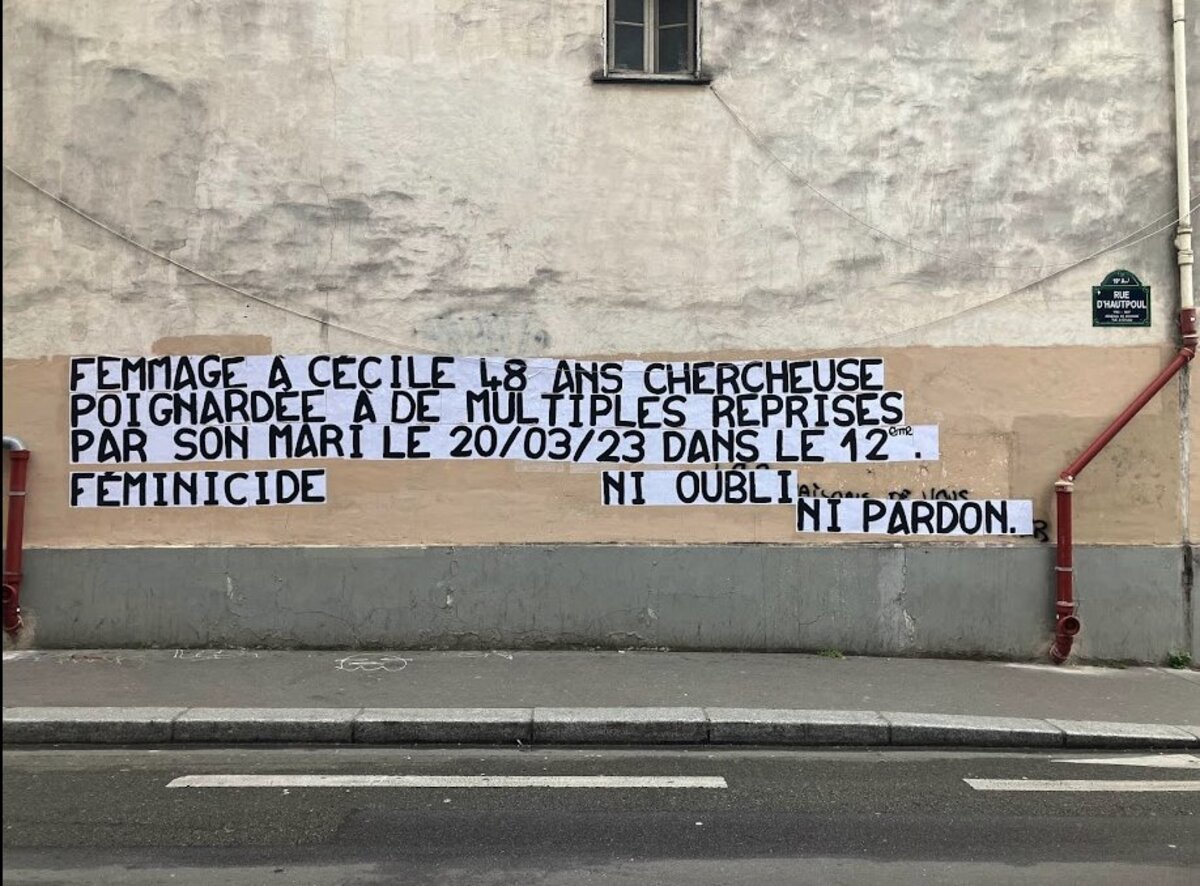 19e Arrt
RUE
D'HAUTPOUL
FEMMAGE À CÉCILE 48 ANS CHERCHEUSE
POIGNARDÉE À DE MULTIPLES REPRISES
PAR SON MARI LE 20/03/23 DANS LE 12EME.
FÉMINICIDE NI OUBLI
NI PARDON.